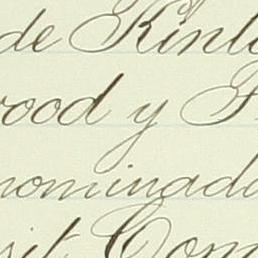 de Kinlo
wood y F
nominada
sit Com